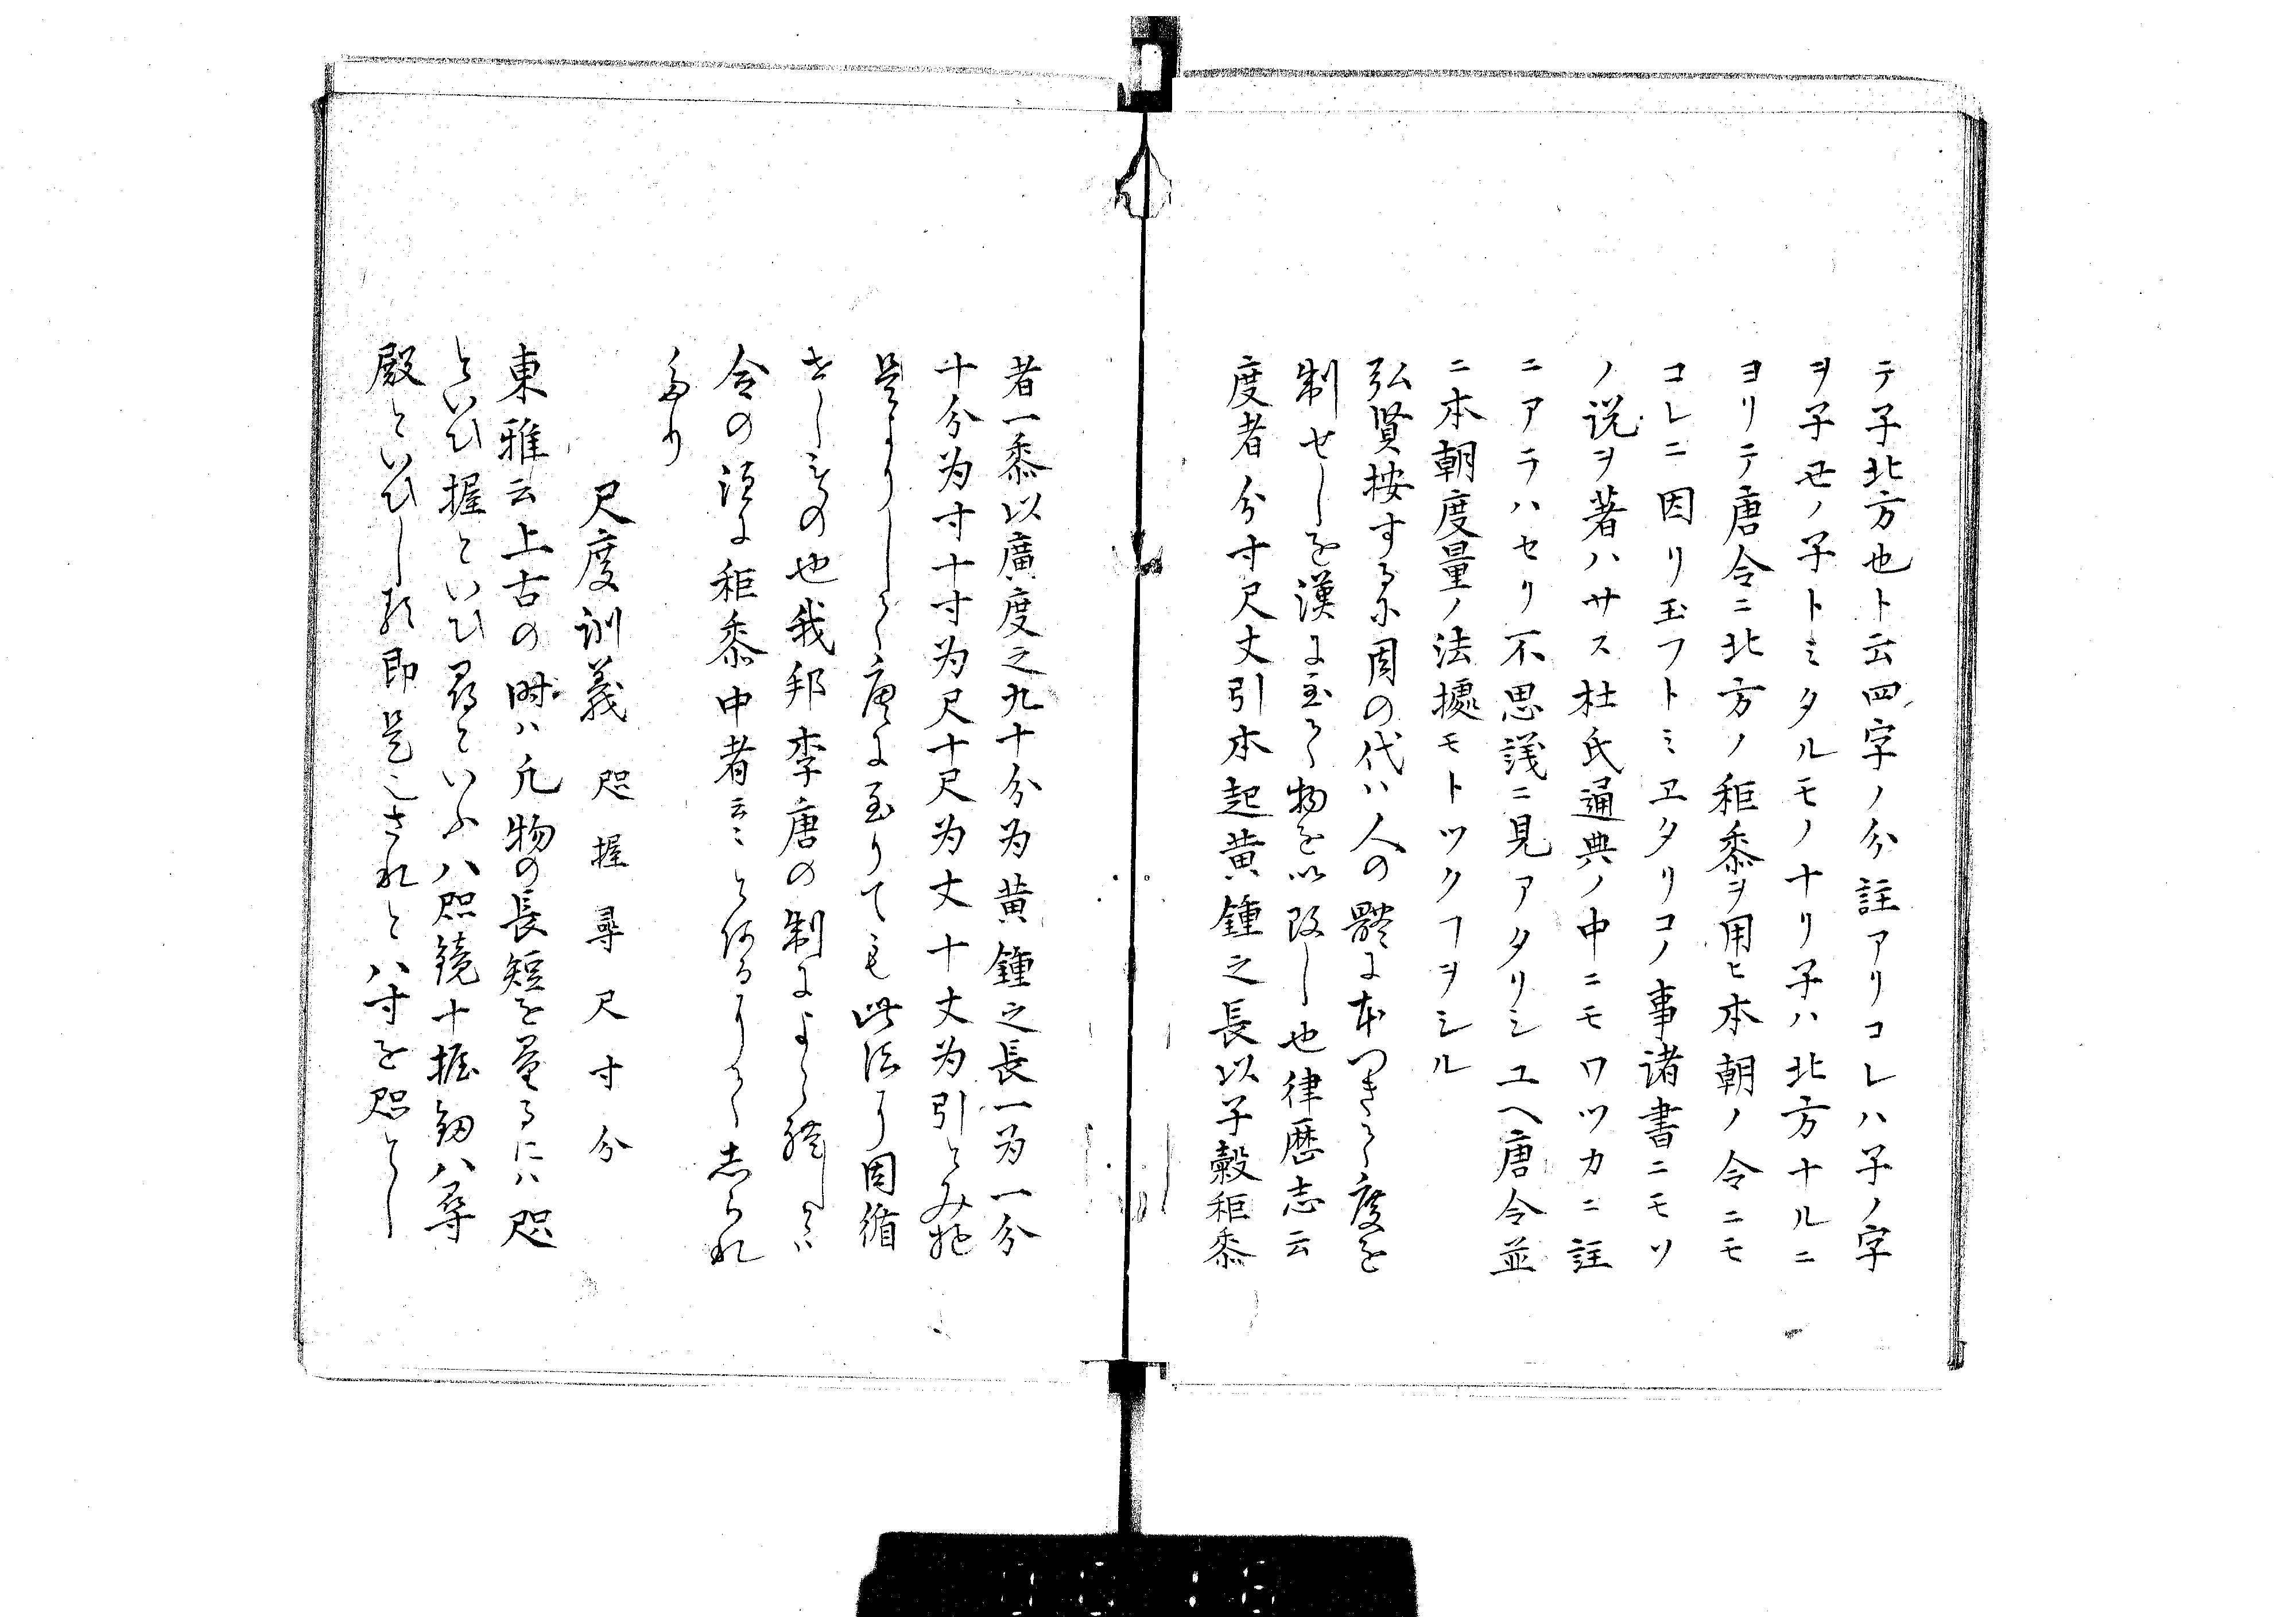 テ子北方也ト云四字ノ分註アリコレハ子ノ字
ヲ子丗ノ子トミタルモノナリ子ハ北方ナルニ
ヨリテ唐令ニ北方ノ秬黍ヲ用ヒ本朝ノ令ニモ
コレニ因リ玉フトミヱタリコノ事諸書ニモソ
ノ説ヲ著ハサス杜氏通典ノ中ニモワツカニ註
ニアラハセリ不思議ニ見アタリシユヘ唐令並
ニ本朝度量ノ法據モトツクヿヲシル
弘賢按するに周の代ハ人の體に本つきて度を
制せしを漢に至て物を以改し也律歴志云
度者分寸尺丈引本起黄鍾之長以子穀秬黍
者一黍以廣度之九十分为黄鍾之長一为一分
十分为寸十寸为尺十尺为丈十丈为引とみ江
是よりして唐に至りても此法に因循
せしもの也我邦李唐の制によら給へハ
令の注に秬黍中者云々とあるにて志られ
たり
尺度訓義 咫握尋尺寸分
東雅云上古の時ハ凡物の長短を量るにハ咫
といひ握といひ尋といふ八咫鏡十握劔八尋
殿といひし類即是也されと八寸を咫とし